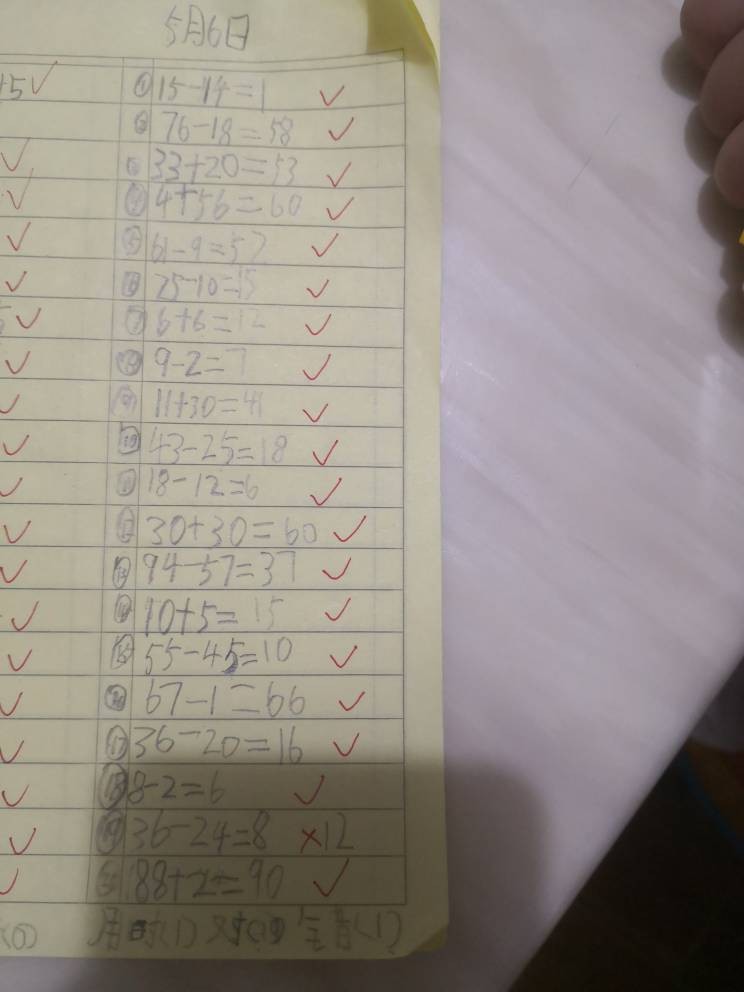 5月6日
+5✓
① 15-14=1 ✓
② 76-18=58 ✓
③ 33+20=53 ✓
④ 4+56=60 ✓
⑤ 61-9=52 ✓
⑥ 25-10=15 ✓
⑦ 6+6=12 ✓
⑧ 9-2=7 ✓
⑨ 11+30=41 ✓
⑩ 43-25=18 ✓
⑪ 18-12=6 ✓
⑫ 30+30=60 ✓
⑬ 94-57=37 ✓
⑭ 10+5=15 ✓
⑮ 55-45=10 ✓
⑯ 67-1=66 ✓
⑰ 36-20=16 ✓
⑱ 8-2=6 ✓
⑲ 36-24=8 ×12
⑳ 88+2=90 ✓